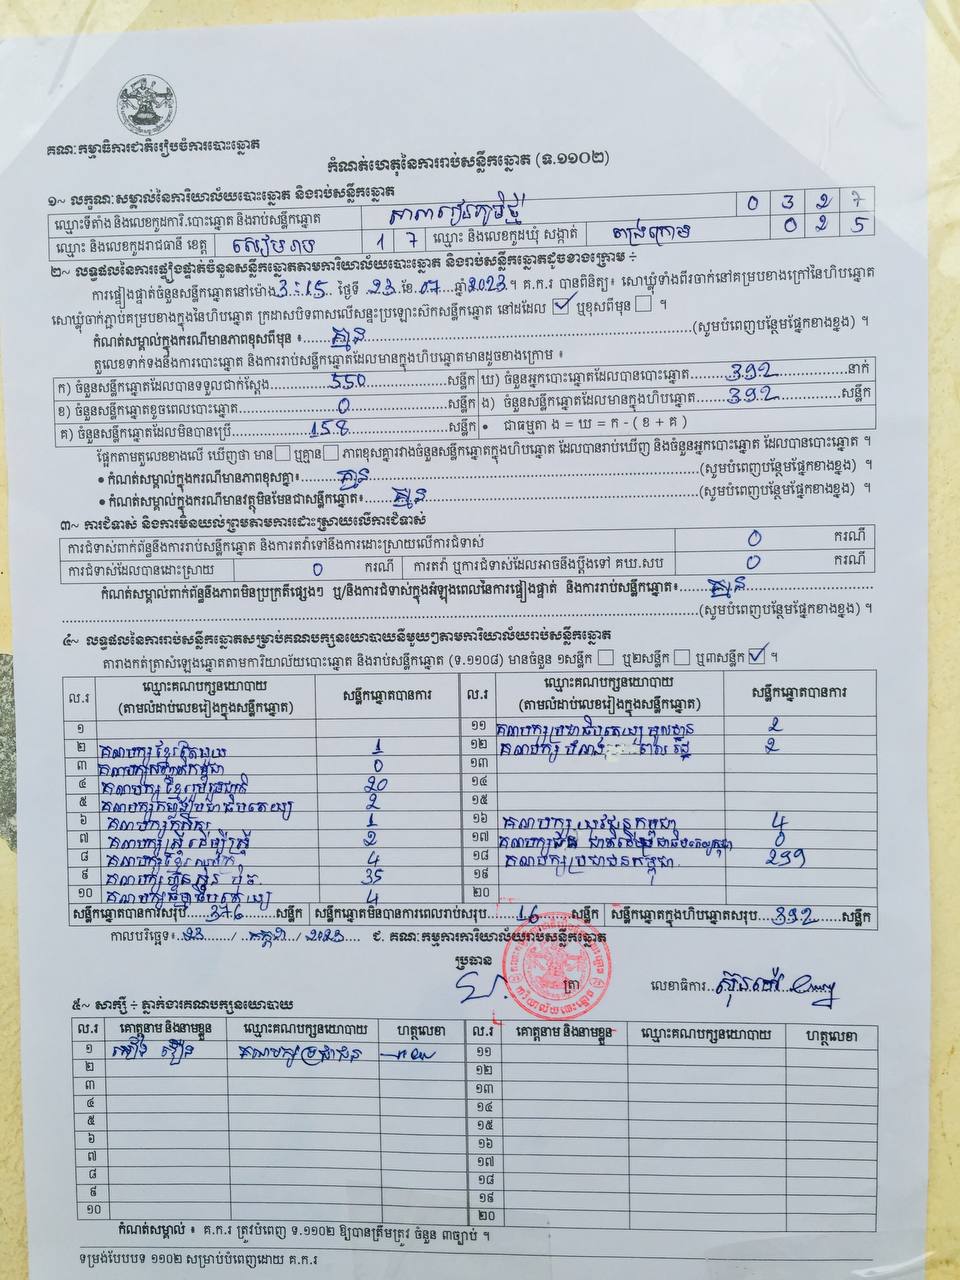 គណៈកម្មាធិការជាតិរៀបចំការបោះឆ្នោត
កំណត់ហេតុនៃការរាប់សន្លឹកឆ្នោត (ទ.១១០២)
១~ លក្ខណៈសម្គាល់នៃការិយាល័យបោះឆ្នោត និងរាប់សន្លឹកឆ្នោត
ឈ្មោះទីតាំង និងលេខកូដការិ.បោះឆ្នោត និងរាប់សន្លឹកឆ្នោត 0 3 2 7
ឈ្មោះ និងលេខកូដរាជធានី ខេត្ត សៀមរាប 1 7 ឈ្មោះ និងលេខកូដឃុំ សង្កាត់ 0 2 5
២~ លទ្ធផលនៃការផ្ទៀងផ្ទាត់ចំនួនសន្លឹកឆ្នោតតាមការិយាល័យបោះឆ្នោត និងរាប់សន្លឹកឆ្នោតដូចខាងក្រោម ÷
ការផ្ទៀងផ្ទាត់ចំនួនសន្លឹកឆ្នោតនៅម៉ោង 3:15 ថ្ងៃទី 23 ខែ 07 ឆ្នាំ 2023 ។ គ.ក.រ បានពិនិត្យ៖ សោឃ្លុំទាំងពីរចាក់នៅគម្របខាងក្រៅនៃហិបឆ្នោត
សោឃ្លុំចាក់ភ្ជាប់គម្របខាងក្នុងនៃហិបឆ្នោត ក្រដាសបិទពាសលើសន្ទះប្រឡោះស៊កសន្លឹកឆ្នោត នៅដដែល ☑ ឬខុសពីមុន ☐ ។
កំណត់សម្គាល់ក្នុងករណីមានភាពខុសពីមុន ៖ គ្មាន (សូមបំពេញបន្ថែមផ្នែកខាងខ្នង) ។
តួលេខទាក់ទងនឹងការបោះឆ្នោត និងការរាប់សន្លឹកឆ្នោតដែលមានក្នុងហិបឆ្នោតមានដូចខាងក្រោម ៖
ក) ចំនួនសន្លឹកឆ្នោតដែលបានទទួលជាក់ស្តែង 550 សន្លឹក ឃ) ចំនួនអ្នកបោះឆ្នោតដែលបានបោះឆ្នោត 392 នាក់
ខ) ចំនួនសន្លឹកឆ្នោតខូចពេលបោះឆ្នោត 0 សន្លឹក ង) ចំនួនសន្លឹកឆ្នោតដែលមានក្នុងហិបឆ្នោត 392 សន្លឹក
គ) ចំនួនសន្លឹកឆ្នោតដែលមិនបានប្រើ 158 សន្លឹក • ជាធម្មតា ង = ឃ = ក - ( ខ + គ )
ផ្អែកតាមតួលេខខាងលើ ឃើញថា មាន ☐ ឬគ្មាន ☐ ភាពខុសគ្នារវាងចំនួនសន្លឹកឆ្នោតក្នុងហិបឆ្នោត ដែលបានរាប់ឃើញ និងចំនួនអ្នកបោះឆ្នោត ដែលបានបោះឆ្នោត ។
• កំណត់សម្គាល់ក្នុងករណីមានភាពខុសគ្នា៖ គ្មាន (សូមបំពេញបន្ថែមផ្នែកខាងខ្នង) ។
• កំណត់សម្គាល់ក្នុងករណីមានវត្ថុមិនមែនជាសន្លឹកឆ្នោត៖ គ្មាន (សូមបំពេញបន្ថែមផ្នែកខាងខ្នង) ។
៣~ ការជំទាស់ និងការមិនយល់ព្រមតាមការដោះស្រាយលើការជំទាស់
ការជំទាស់ពាក់ព័ន្ធនឹងការរាប់សន្លឹកឆ្នោត និងការតវ៉ាទៅនឹងការដោះស្រាយលើការជំទាស់ 0 ករណី
ការជំទាស់ដែលបានដោះស្រាយ 0 ករណី ការតវ៉ា ឬការជំទាស់ដែលអាចនឹងប្តឹងទៅ គឃ.សប 0 ករណី
កំណត់សម្គាល់ពាក់ព័ន្ធនឹងភាពមិនប្រក្រតីផ្សេងៗ ឬ/និងការជំទាស់ក្នុងអំឡុងពេលនៃការផ្ទៀងផ្ទាត់ និងការរាប់សន្លឹកឆ្នោត៖ គ្មាន
(សូមបំពេញបន្ថែមផ្នែកខាងខ្នង) ។
៤~ លទ្ធផលនៃការរាប់សន្លឹកឆ្នោតសម្រាប់គណបក្សនយោបាយនីមួយៗតាមការិយាល័យរាប់សន្លឹកឆ្នោត
តារាងកត់ត្រាសំឡេងឆ្នោតតាមការិយាល័យបោះឆ្នោត និងរាប់សន្លឹកឆ្នោត (ទ.១១០៨) មានចំនួន ១សន្លឹក ☐ ឬ២សន្លឹក ☐ ឬ៣សន្លឹក ☑ ។
ល.រ ឈ្មោះគណបក្សនយោបាយ (តាមលំដាប់លេខរៀងក្នុងសន្លឹកឆ្នោត) សន្លឹកឆ្នោតបានការ ល.រ ឈ្មោះគណបក្សនយោបាយ (តាមលំដាប់លេខរៀងក្នុងសន្លឹកឆ្នោត) សន្លឹកឆ្នោតបានការ
១ ១១ គណបក្សប្រជាធិបតេយ្យមូលដ្ឋាន 2
២ គណបក្សខ្មែរតែមួយ 1 ១២ គណបក្ស 2
៣ គណបក្សសញ្ជាតិកម្ពុជា 0 ១៣
៤ គណបក្សខ្មែររួបរួមជាតិ 20 ១៤
៥ គណបក្សកម្លាំងប្រជាធិបតេយ្យ 2 ១៥
៦ គណបក្សកសិករ 1 ១៦ គណបក្សយុវជនកម្ពុជា 4
៧ គណបក្សស្ត្រីដើម្បីស្ត្រី 2 ១៧ គណបក្ស 0
៨ គណបក្សខ្មែរ 4 ១៨ គណបក្សប្រជាជនកម្ពុជា 299
៩ គណបក្សហ្វ៊ុនស៊ិនប៉ិច 35 ១៩
១០ គណបក្សធម្មាធិបតេយ្យ 4 ២០
សន្លឹកឆ្នោតបានការសរុប 376 សន្លឹក សន្លឹកឆ្នោតមិនបានការពេលរាប់សរុប 16 សន្លឹក សន្លឹកឆ្នោតក្នុងហិបឆ្នោតសរុប 392 សន្លឹក
កាលបរិច្ឆេទ៖ 23 / កក្កដា / 2023 ជ. គណៈកម្មការការិយាល័យរាប់សន្លឹកឆ្នោត
ប្រធាន ត្រា លេខាធិការ
៥~ សាក្សី ÷ ភ្នាក់ងារគណបក្សនយោបាយ
ល.រ គោត្តនាម និងនាមខ្លួន ឈ្មោះគណបក្សនយោបាយ ហត្ថលេខា ល.រ គោត្តនាម និងនាមខ្លួន ឈ្មោះគណបក្សនយោបាយ ហត្ថលេខា
១ គណបក្សប្រជាជន ១១
២ ១២
៣ ១៣
៤ ១៤
៥ ១៥
៦ ១៦
៧ ១៧
៨ ១៨
៩ ១៩
១០ ២០
កំណត់សម្គាល់ ៖ គ.ក.រ ត្រូវបំពេញ ទ.១១០២ ឱ្យបានត្រឹមត្រូវ ចំនួន ៣ច្បាប់ ។
ទម្រង់បែបបទ ១១០២ សម្រាប់បំពេញដោយ គ.ក.រ